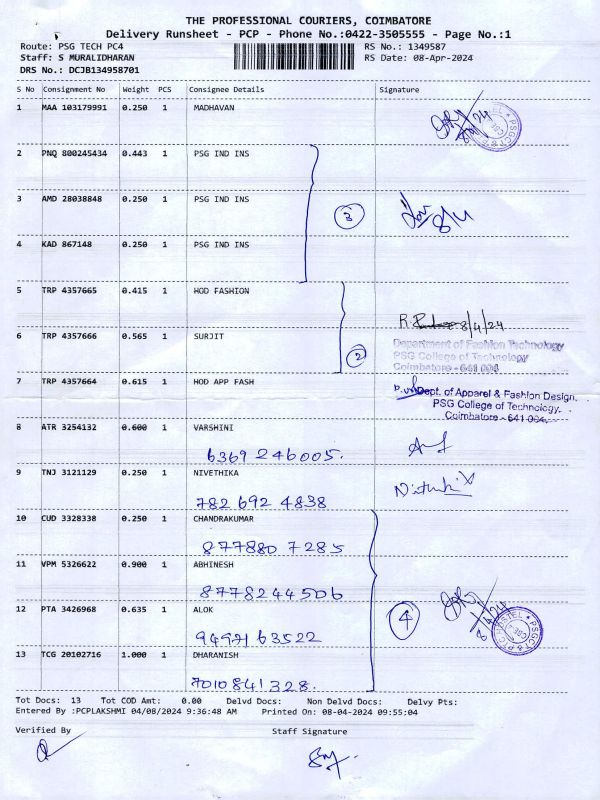 THE PROFESSIONAL COURIERS, COIMBATORE
Delivery Runsheet - PCP - Phone No.:0422-3505555 - Page No.:1
Route: PSG TECH PC4 RS No.: 1349587
Staff: S MURALIDHARAN RS Date: 08-Apr-2024
DRS No.: DCJB134958701
S No Consignment No Weight PCS Consignee Details Signature
1 MAA 103179991 0.250 1 MADHAVAN
8/4/24
2 PNQ 800245434 0.443 1 PSG IND INS
3 AMD 28038848 0.250 1 PSG IND INS
3 8/4
4 KAD 867148 0.250 1 PSG IND INS
5 TRP 4357665 0.415 1 HOD FASHION
8/4/24
6 TRP 4357666 0.565 1 SURJIT
Department of Fashion Technology
2 PSG College of Technology
Coimbatore - 641 004
7 TRP 4357664 0.615 1 HOD APP FASH
Dept. of Apparel & Fashion Design,
PSG College of Technology,
Coimbatore - 641 004.
8 ATR 3254132 0.600 1 VARSHINI
6369 246005.
9 TNJ 3121129 0.250 1 NIVETHIKA
782 692 4838
10 CUD 3328338 0.250 1 CHANDRAKUMAR
877880 7285
11 VPM 5326622 0.900 1 ABHINESH
8778244506
12 PTA 3426968 0.635 1 ALOK
4 8/4/24
63522
13 TCG 20102716 1.000 1 DHARANISH
7010841328.
Tot Docs: 13 Tot COD Amt: 0.00 Delvd Docs: Non Delvd Docs: Delvy Pts:
Entered By :PCPLAKSHMI 04/08/2024 9:36:48 AM Printed On: 08-04-2024 09:55:04
Verified By Staff Signature